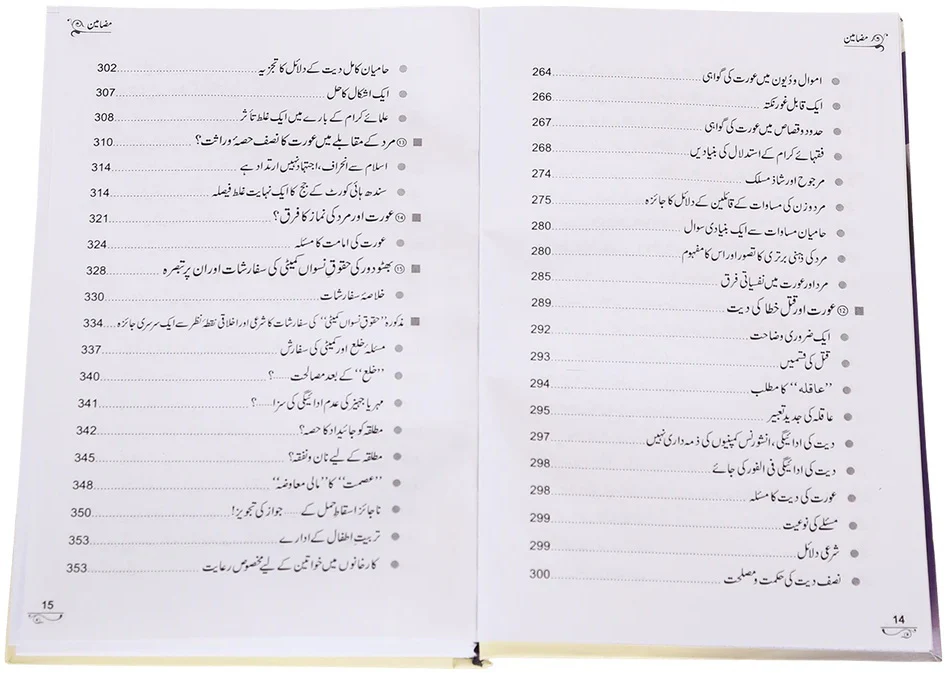 مضامین
اموال و دیون میں عورت کی گواہی 264
ایک قابل غور نکتہ 266
حدود و قصاص میں عورت کی گواہی 267
فقہائے کرام کے استدلال کی بنیادیں 268
مرجوح اور شاذ مسلک 274
مرد و زن کی مساوات کے قائلین کے دلائل کا جائزہ 275
حامیان مساوات سے ایک بنیادی سوال 280
مرد کی ذہنی برتری کا تصور اور اس کا مفہوم 280
مرد اور عورت میں نفسیاتی فرق 285
⑫ عورت اور قتل خطا کی دیت 289
ایک ضروری وضاحت 292
قتل کی قسمیں 293
’’عاقلہ‘‘ کا مطلب 294
عاقلہ کی جدید تعبیر 295
دیت کی ادائیگی، انشورنس کمپنیوں کی ذمہ داری نہیں 297
دیت کی ادائیگی فی الفور کی جائے 298
عورت کی دیت کا مسئلہ 298
مسئلے کی نوعیت 299
شرعی دلائل 299
نصف دیت کی حکمت و مصلحت 300
14
مضامین
حامیان کامل دیت کے دلائل کا تجزیہ 302
ایک اشکال کا حل 307
علمائے کرام کے بارے میں ایک غلط تأثر 308
⑬ مرد کے مقابلے میں عورت کا نصف حصۂ وراثت؟ 310
اسلام سے انحراف، اجتہاد نہیں ارتداد ہے 314
سندھ ہائی کورٹ کے جج کا ایک نہایت غلط فیصلہ 314
⑭ عورت اور مرد کی نماز کا فرق؟ 321
عورت کی امامت کا مسئلہ 324
⑮ بھٹو دور کی حقوق نسواں کمیٹی کی سفارشات اور ان پر تبصرہ 328
خلاصۂ سفارشات 330
مذکورہ ’’حقوق نسواں کمیٹی‘‘ کی سفارشات کا شرعی اور اخلاقی نقطۂ نظر سے ایک سرسری جائزہ 334
مسئلۂ خلع اور کمیٹی کی سفارش 337
’’خلع‘‘ کے بعد مصالحت ......؟ 340
مہر یا جہیز کی عدم ادائیگی کی سزا ......؟ 341
مطلقہ کو جائیداد کا حصہ؟ 342
مطلقہ کے لیے نان و نفقہ؟ 345
’’عصمت‘‘ کا ’’مالی معاوضہ‘‘ 348
ناجائز اسقاط حمل کے ...... جواز کی تجویز! 350
تربیت اطفال کے ادارے 353
کارخانوں میں خواتین کے لیے مخصوص رعایت 353
15